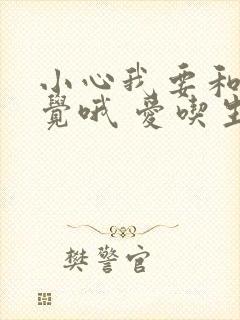 小心我要和
覺哦 愛喫生
樊警官